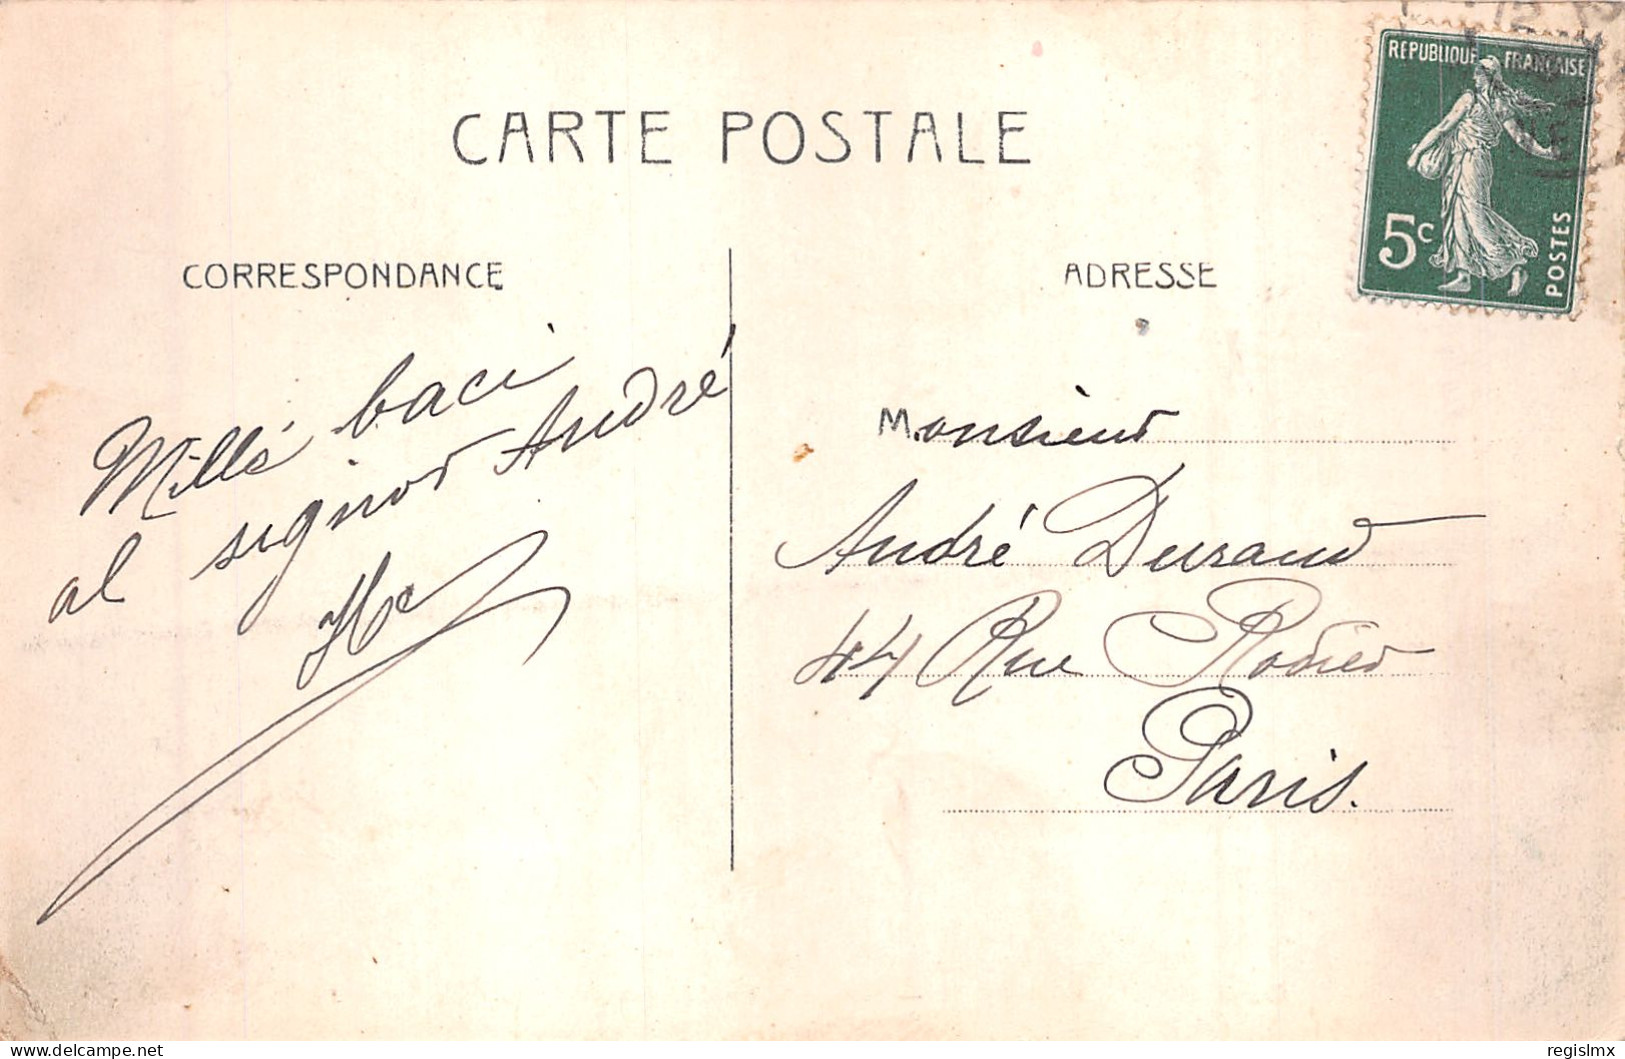 CARTE POSTALE
RÉPUBLIQUE FRANÇAISE
5c
POSTES
CORRESPONDANCE
Millé baci
al signor André
ADRESSE
Monsieur
André Durand
44 Rue Rodier
Paris.
delcampe.net
regislmx